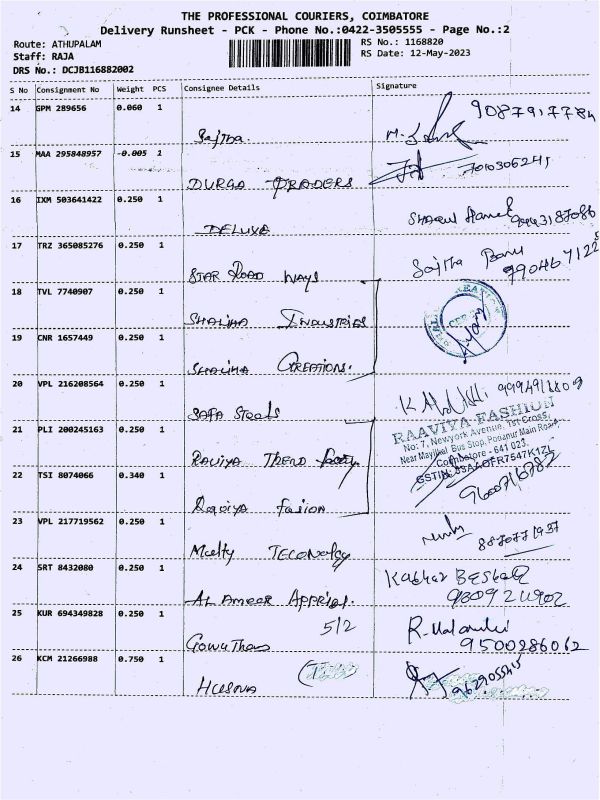 THE PROFESSIONAL COURIERS, COIMBATORE
Delivery Runsheet - PCK - Phone No.:0422-3505555 - Page No.:2
Route: ATHUPALAM
RS No.: 1168820
Staff: RAJA
RS Date: 12-May-2023
DRS No.: DCJB116882002
S No Consignment No Weight PCS Consignee Details Signature
14 GPM 289656 0.060 1
9087917784
Sajitha
15 MAA 295848957 -0.005 1
7010306241
DURGA TRADERS
16 IXM 503641422 0.250 1
DELUXE
9443187086
17 TRZ 365085276 0.250 1
Sajitha Banu
STAR ROAD WAYS
18 TVL 7740907 0.250 1
SHALIHA INDUSTRIES
19 CNR 1657449 0.250 1
SHALIHA CREATIONS.
20 VPL 216208564 0.250 1
SAFA Steels
21 PLI 200245163 0.250 1
RAAVIYA FASHION
No: 7, Newyork Avenue, 1st Cross,
Near Mayilkal Bus Stop, Podanur Main Road,
Coimbatore - 641 023.
GSTIN: 33AAOFR7547K1ZL
RAVIYA TREND
22 TSI 8074066 0.340 1
9600716782
Raviya Fasion
23 VPL 217719562 0.250 1
24 SRT 8432080 0.250 1
AL AMEER
25 KUR 694349828 0.250 1
5/2
9500286062
Gowtham
26 KCM 21266988 0.750 1